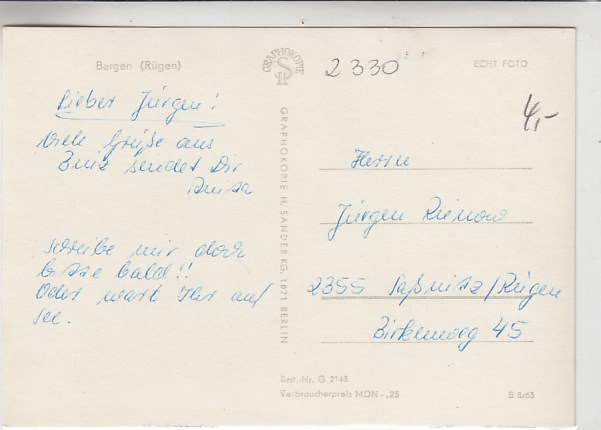 Bergen (Rügen)
GRAPHOKOPIE
2330
ECHT FOTO
4,-
Lieber Jürgen!
Viele Grüße aus
Binz sendet Dir
schreibe mir doch
bitte bald!!
Oder wart Ihr auf
See.
GRAPHOKOPIE H. SANDER KG, 1071 BERLIN
Herrn
Jürgen Rienow
2355 Saßnitz/Rügen
Birkenweg 45
Best.-Nr. G 2148
Verbraucherpreis MDN -,25
B 8/65